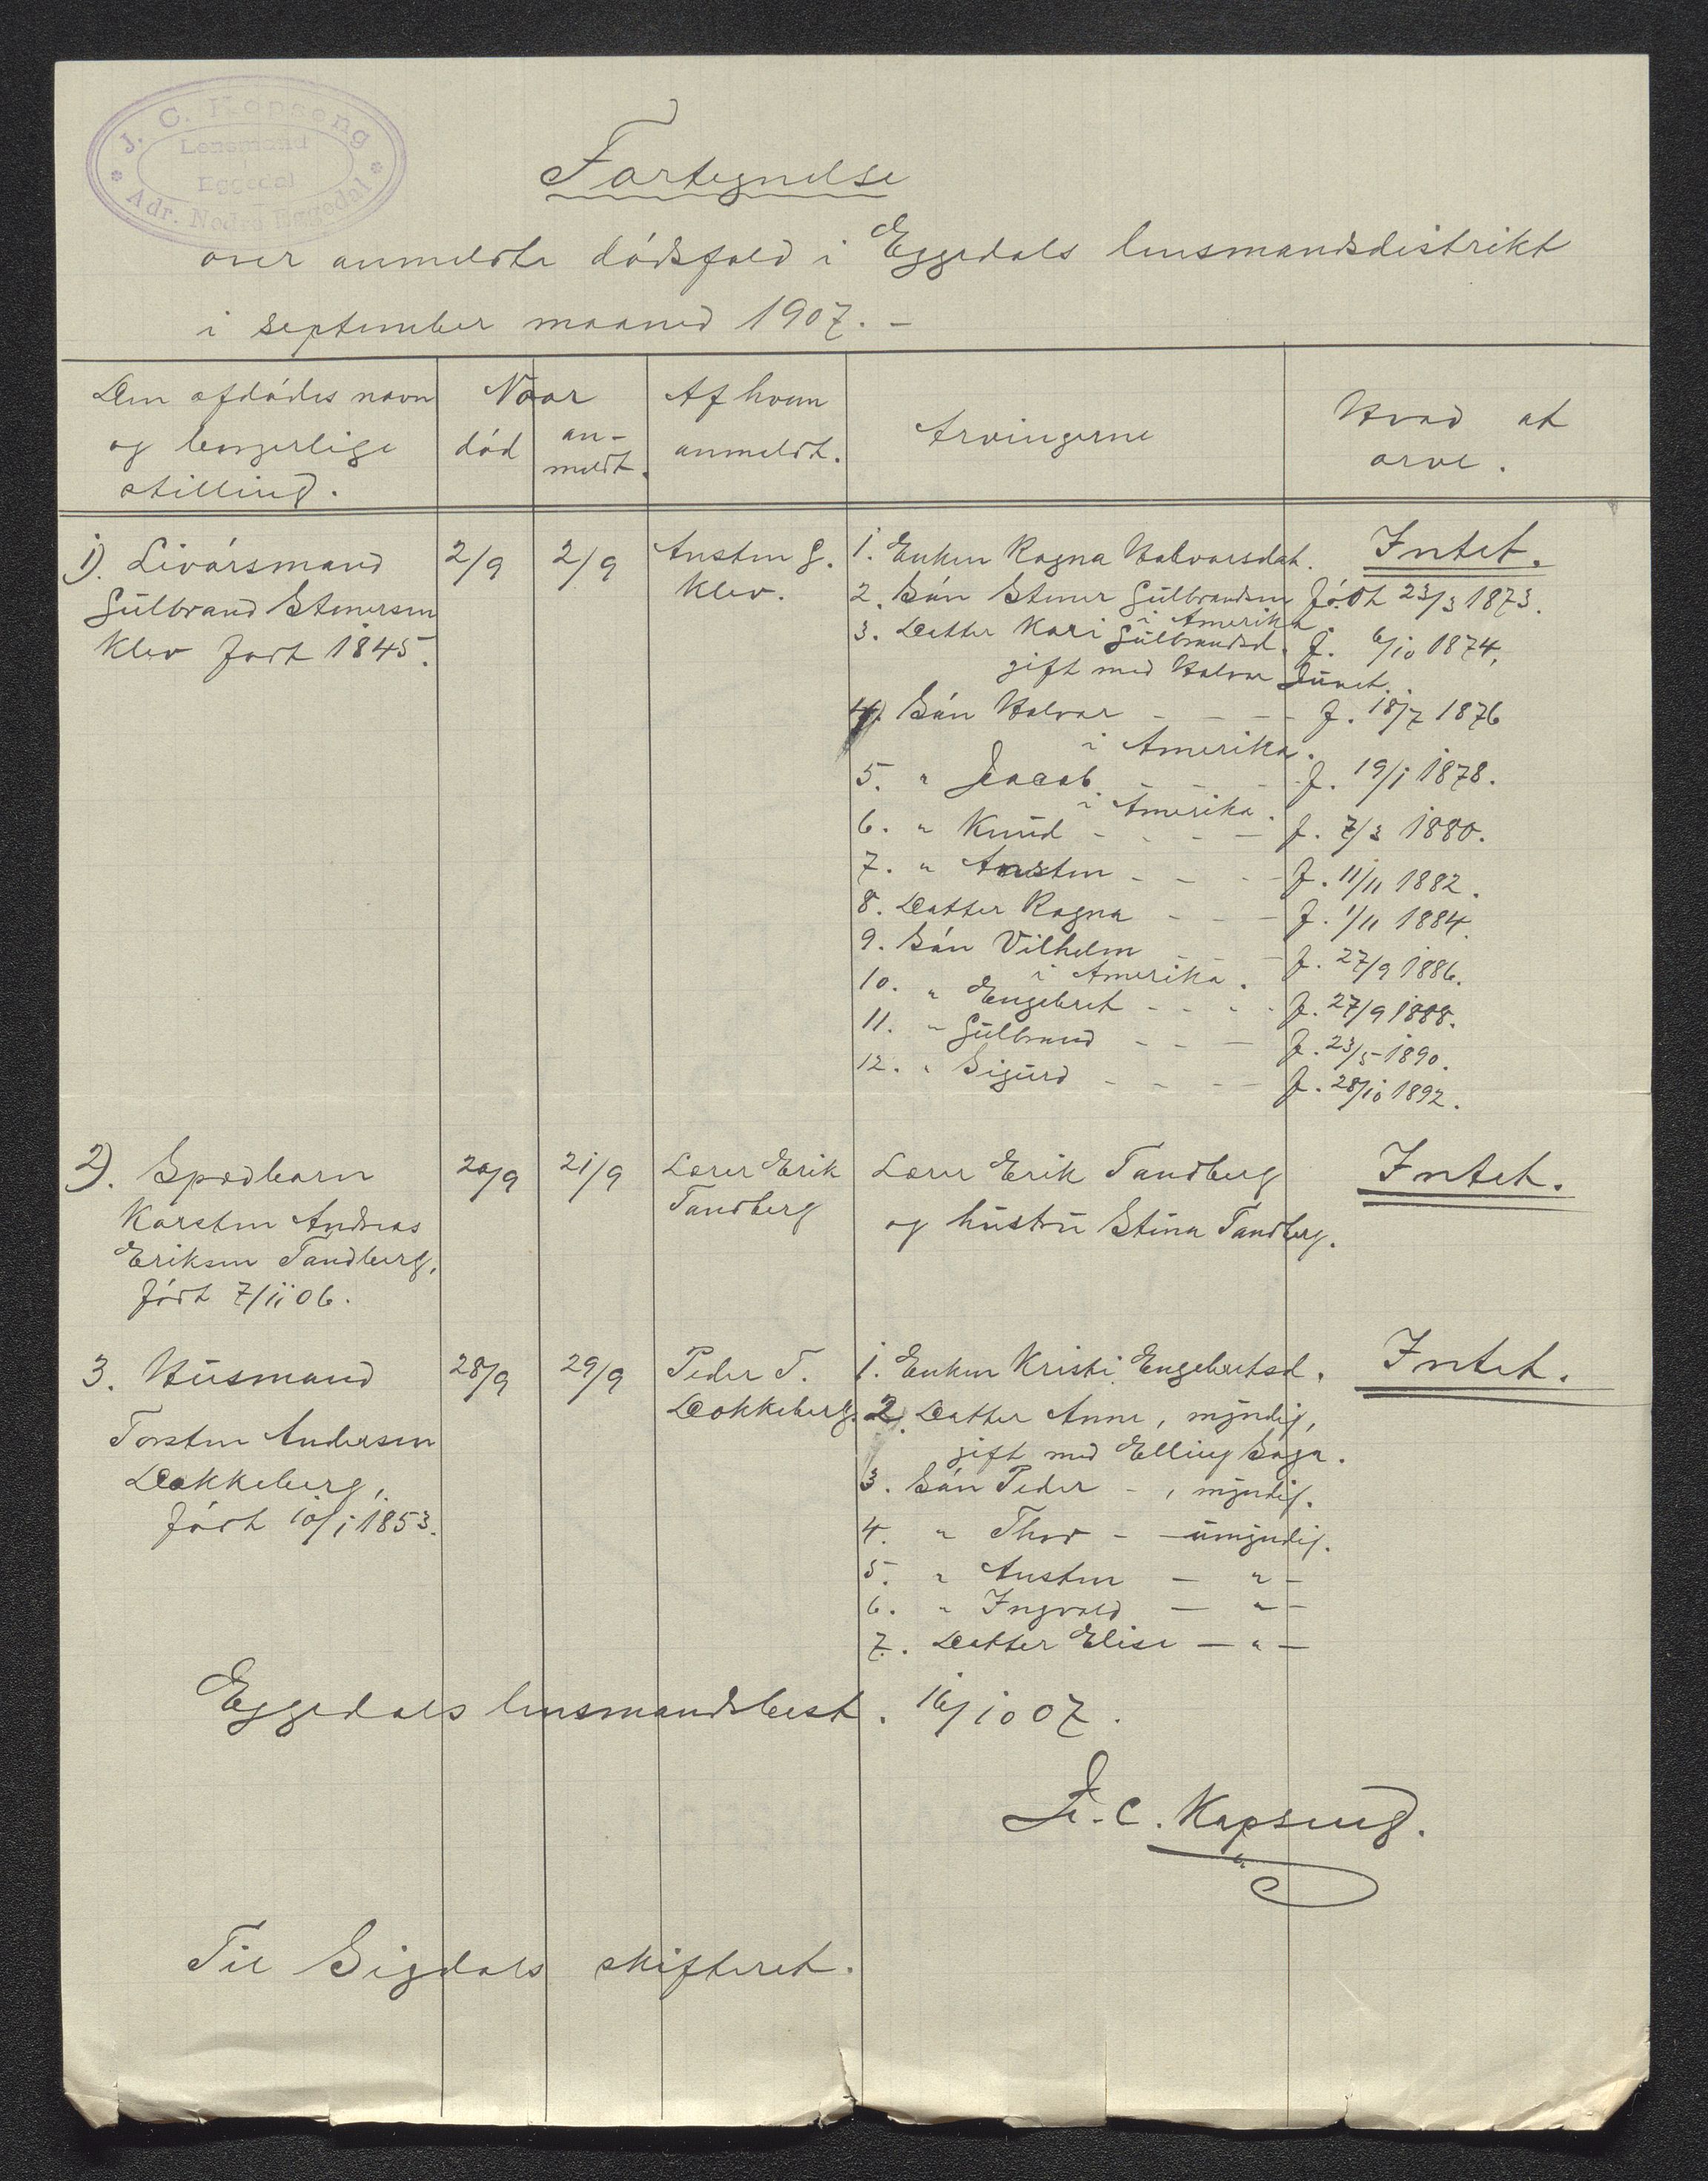 J. C. Kopseng
Lensmand
i
Eggedal
Adr. Nedre Eggedal
Fortegnelse
over anmeldte dödsfald i Eggedals lensmandsdistrikt
i september maaned 1907. –
Den afdödes navn og borgerlige stilling.
Naar
död
an-meldt.
Af hvem anmeldt.
Arvingerne
Hvad at arve.
1). Livörsmand
Gulbrand Stenersen
Klev født 1845.
2/9
2/9
Austen G.
Klev.
Intet.
1. Enken Ragna Halvorsdat.
2. Sön Stener Gulbrandsen födt 23/3 1873.
i Amerika.
3. Datter Kari Gulbrandsd. f. 6/10 1874,
gift med Halvor
4) Sön Halvor – – – f. 18/7 1876
i Amerika.
5. " Jacob – – – f. 19/1 1878.
i Amerika.
6. " Knud – – – f. 7/3 1880.
7. " Austen – – – f. 11/11 1882.
8. Datter Ragna – – – f. 1/11 1884.
9. Sön Vilhelm – – f. 27/9 1886.
i Amerika.
10. " Engebret – – – f. 27/9 1888.
11. " Gulbrand – – – f. 23/5 1890.
12. " Sigurd – – – f. 28/10 1892.
2). Spædbarn
Karsten Andreas
Eriksen Tandberg,
födt 7/11 06.
20/9
21/9
Lærer Erik
Tandberg
Lærer Erik Tandberg
og hustru Stina Tandberg.
Intet.
3. Husmand
Torsten Andersen
Dokkeberg,
födt 10/1 1853.
28/9
29/9
Peder T.
Dokkeberg.
Intet.
1. Enken Kristi Engebretsd.
2. Datter Anne, myndig,
gift med Elling Haga.
3. Sön Peder – , myndig.
4. " Thor – – umyndig.
5. " Austen – " –
6. " Ingvald – " –
7. Datter Elise – " –
Eggedals lensmandsbest. 16/10 07.
J. C. Kopseng.
Til Sigdals skifteret.